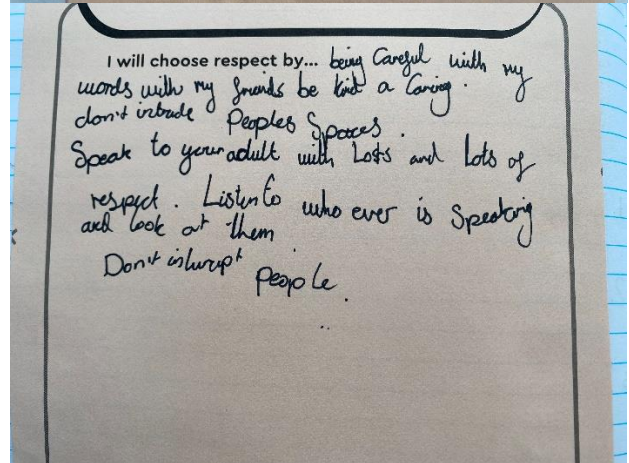 I will choose respect by... being Careful with my
words with my friends be kind a Caring.
don't intrude Peoples Spaces.
Speak to your adult with Lots and Lots of
respect. Listen to who ever is Speaking
and look at them
Don't inturupt People.